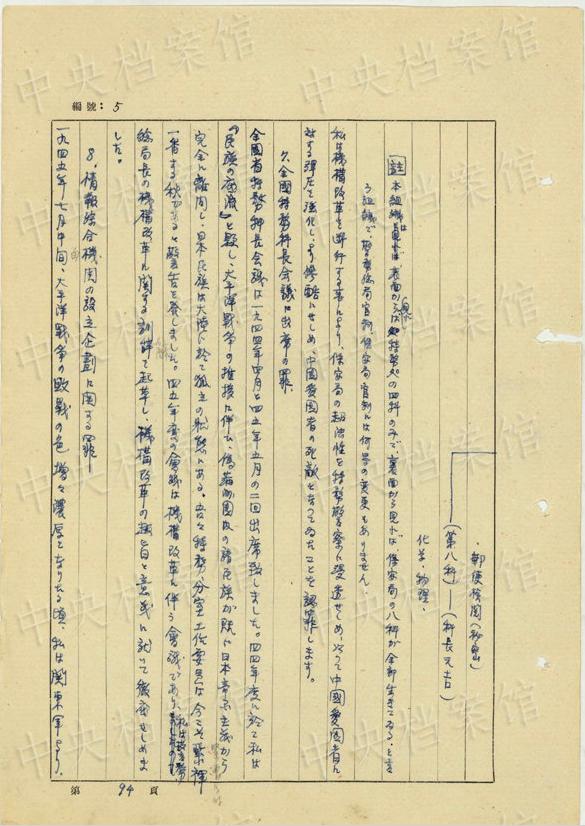 編號：5
・郵便機関(秘密)
(第八科)―(科長 元吉)
化学・物理、
註 本組織は 表面からは 特務処の四科のみで、裏面から見れば、保安局の八科が全部生きてゐる、と言
ふ組織で、警務総局官制、保安局官制には何等の変更もありません。
私は機構改革を断行する事により、保安局の超法性を特務警察に浸透せしめ、以つて中國愛國者に
対する弾圧を強化し、より惨酷にせしめ、中國愛國者の死敵となつてゐたことを認罪します。
7、全國特務科長会議に出席の罪、
全國省特務科長会議は一九四四年四月と四五年五月の二回出席致しました。四四年度に於て私は
『民族の底流』と題し、大平洋戦争の推移に伴ひ、偽満州國内の諸民族が既に日本帝国主義から
完全に離間し、日本民族は大陸に於て孤立の状態にある。吾々特務、分室工作要員は今こそ緊褌
一番する秋である と警告を発しました。四五年度の會議は機構改革に伴う會議であり、私は
総局長の機構改革に関する訓辞を起草し、機構改革の趣旨と意義に就いて徹底せしめま
した。
8、情報綜合機関の設立企劃に関する罪
一九四五年七月中旬、大平洋戦争の敗戦の色増々濃厚となりたる頃、私は関東軍より、
第 94 頁
中央档案馆